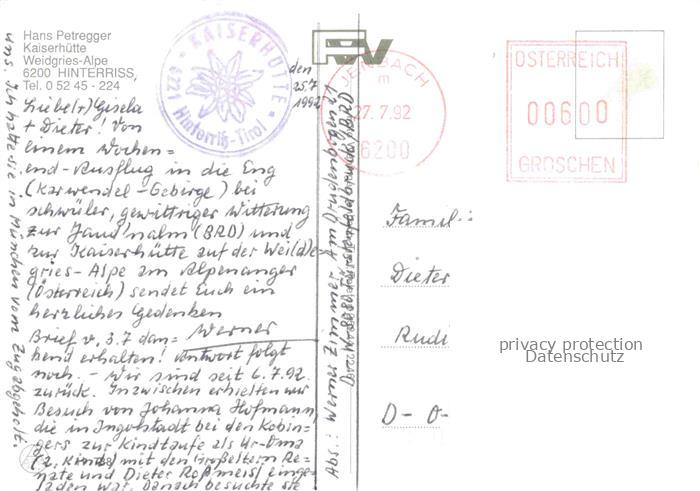 Hans Petregger
Kaiserhütte
Weidgries-Alpe
6200 HINTERRISS,
Tel. 0 52 45 - 224
KAISERHÜTTE
6222
Hinterriß-Tirol
JENBACH
m
27.7.92
6200
ÖSTERREICH
00600
GROSCHEN
den
25.7.
1992
Liebe(r) Gisela
+ Dieter! Von
einem Wochen=
end-Ausflug in die Eng
(Karwendel-Gebirge) bei
schwüler, gewittriger Witterung
zur Jaud'nalm (BRD) und
zur Kaiserhütte auf der Wei(d)e-
gries-Alpe am Alpenanger
(Österreich) sendet Euch ein
herzliches Gedenken
Werner
Brief v. 3.7 dan=
kend erhalten! Antwort folgt
noch. - Wir sind seit 6.7.92
zurück. Inzwischen erhielten wir
Besuch von Johanna Hofmann,
die in Ingolstadt bei den Kobin=
gers zur Kindtaufe als Ur-Oma
(2. Kind) mit den Großeltern Re=
nate und Dieter Roßmeisl einge-
laden war. Danach besuchte sie
uns. Ich hatte sie in München vom Zug abgeholt.
Abs.: Werner Zimmer, Am
D-W-8080 Fürstenfeldbruck/BRD
Famil
Dieter
Rudi
D-O-
privacy protection
Datenschutz